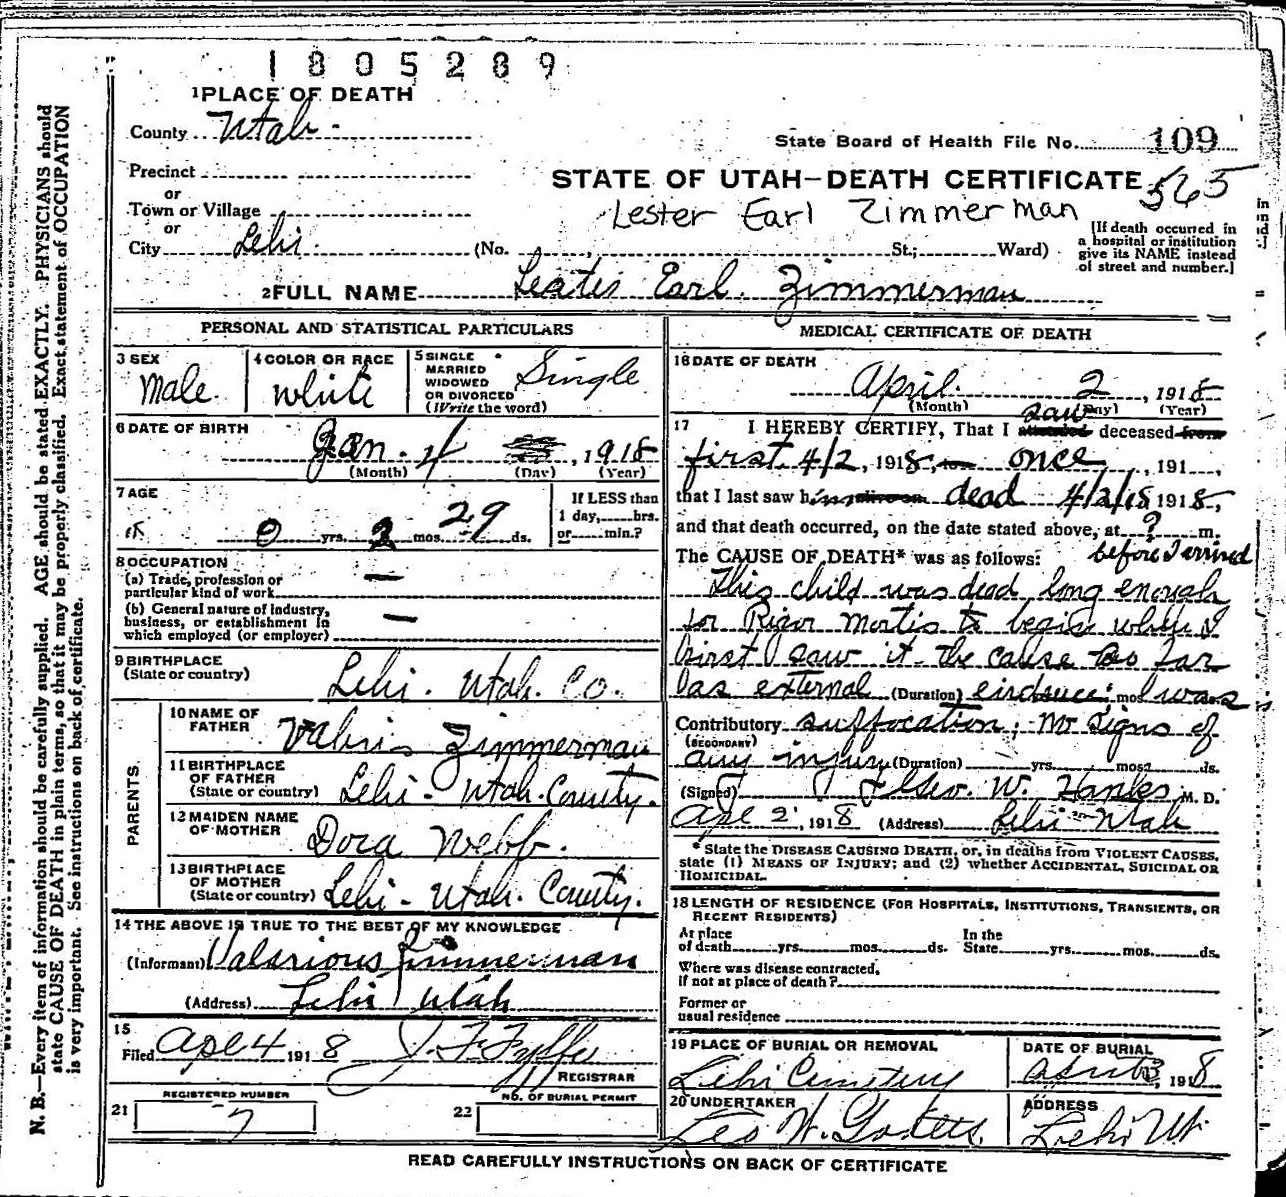 1 8 0 5 2 8 9
1 PLACE OF DEATH
County Utah.
State Board of Health File No. 109
Precinct
STATE OF UTAH—DEATH CERTIFICATE 565
or
Town or Village
Lester Earl Zimmerman
or
City Lehi. (No. St.; Ward)
[If death occurred in
a hospital or institution
give its NAME instead
of street and number.]
2 FULL NAME Earl. Zimmerman
PERSONAL AND STATISTICAL PARTICULARS
3 SEX
Male.
4 COLOR OR RACE
White
5 SINGLE
MARRIED
WIDOWED
OR DIVORCED
(Write the word)
Single
6 DATE OF BIRTH
Jan. 4, 1918
(Month) (Day) (Year)
7 AGE
0 yrs. 2 mos. 29 ds.
If LESS than
1 day, hrs.
or min.?
8 OCCUPATION
(a) Trade, profession or
particular kind of work —
(b) General nature of industry,
business, or establishment in
which employed (or employer) —
9 BIRTHPLACE
(State or country) Lehi. Utah. Co.
PARENTS
10 NAME OF
FATHER Zimmerman
11 BIRTHPLACE
OF FATHER
(State or country) Lehi - Utah. County.
12 MAIDEN NAME
OF MOTHER Dora Webb.
13 BIRTHPLACE
OF MOTHER
(State or country) Lehi - Utah. County.
14 THE ABOVE IS TRUE TO THE BEST OF MY KNOWLEDGE
(Informant) Valarious Zimmerman
(Address) Lehi Utah
15
Filed Apr 4 1918 J. F. Fyffe
REGISTRAR
REGISTERED NUMBER
21 7
NO. OF BURIAL PERMIT
22
MEDICAL CERTIFICATE OF DEATH
16 DATE OF DEATH
April. 2, 1918
(Month) (Day) (Year)
17 I HEREBY CERTIFY, That I attended saw deceased from
first 4/2, 1918, to once, 191 ,
that I last saw him alive on dead 4/2/18 1918,
and that death occurred, on the date stated above, at ? m.
before I arrived
The CAUSE OF DEATH* was as follows:
This child was dead long enough
for Rigor Mortis to begin when I
first saw it. The cause so far
as external (Duration) evidence mos. was
Contributory suffocation; No signs of
(SECONDARY)
any injury (Duration) yrs. mos. ds.
(Signed) Geo. W. Hanks M. D.
Apr 2, 1918 (Address) Lehi Utah
* State the DISEASE CAUSING DEATH, or, in deaths from VIOLENT CAUSES,
state (1) MEANS OF INJURY; and (2) whether ACCIDENTAL, SUICIDAL OR
HOMICIDAL.
18 LENGTH OF RESIDENCE (FOR HOSPITALS, INSTITUTIONS, TRANSIENTS, OR
RECENT RESIDENTS)
At place
of death yrs. mos. ds.
In the
State yrs. mos. ds.
Where was disease contracted,
if not at place of death?
Former or
usual residence
19 PLACE OF BURIAL OR REMOVAL
Lehi Cemetery
DATE OF BURIAL
1918
20 UNDERTAKER
W.
ADDRESS
Lehi Ut.
READ CAREFULLY INSTRUCTIONS ON BACK OF CERTIFICATE
N. B.—Every item of information should be carefully supplied. AGE should be stated EXACTLY. PHYSICIANS should
state CAUSE OF DEATH in plain terms, so that it may be properly classified. Exact statement of OCCUPATION
is very important. See instructions on back of certificate.